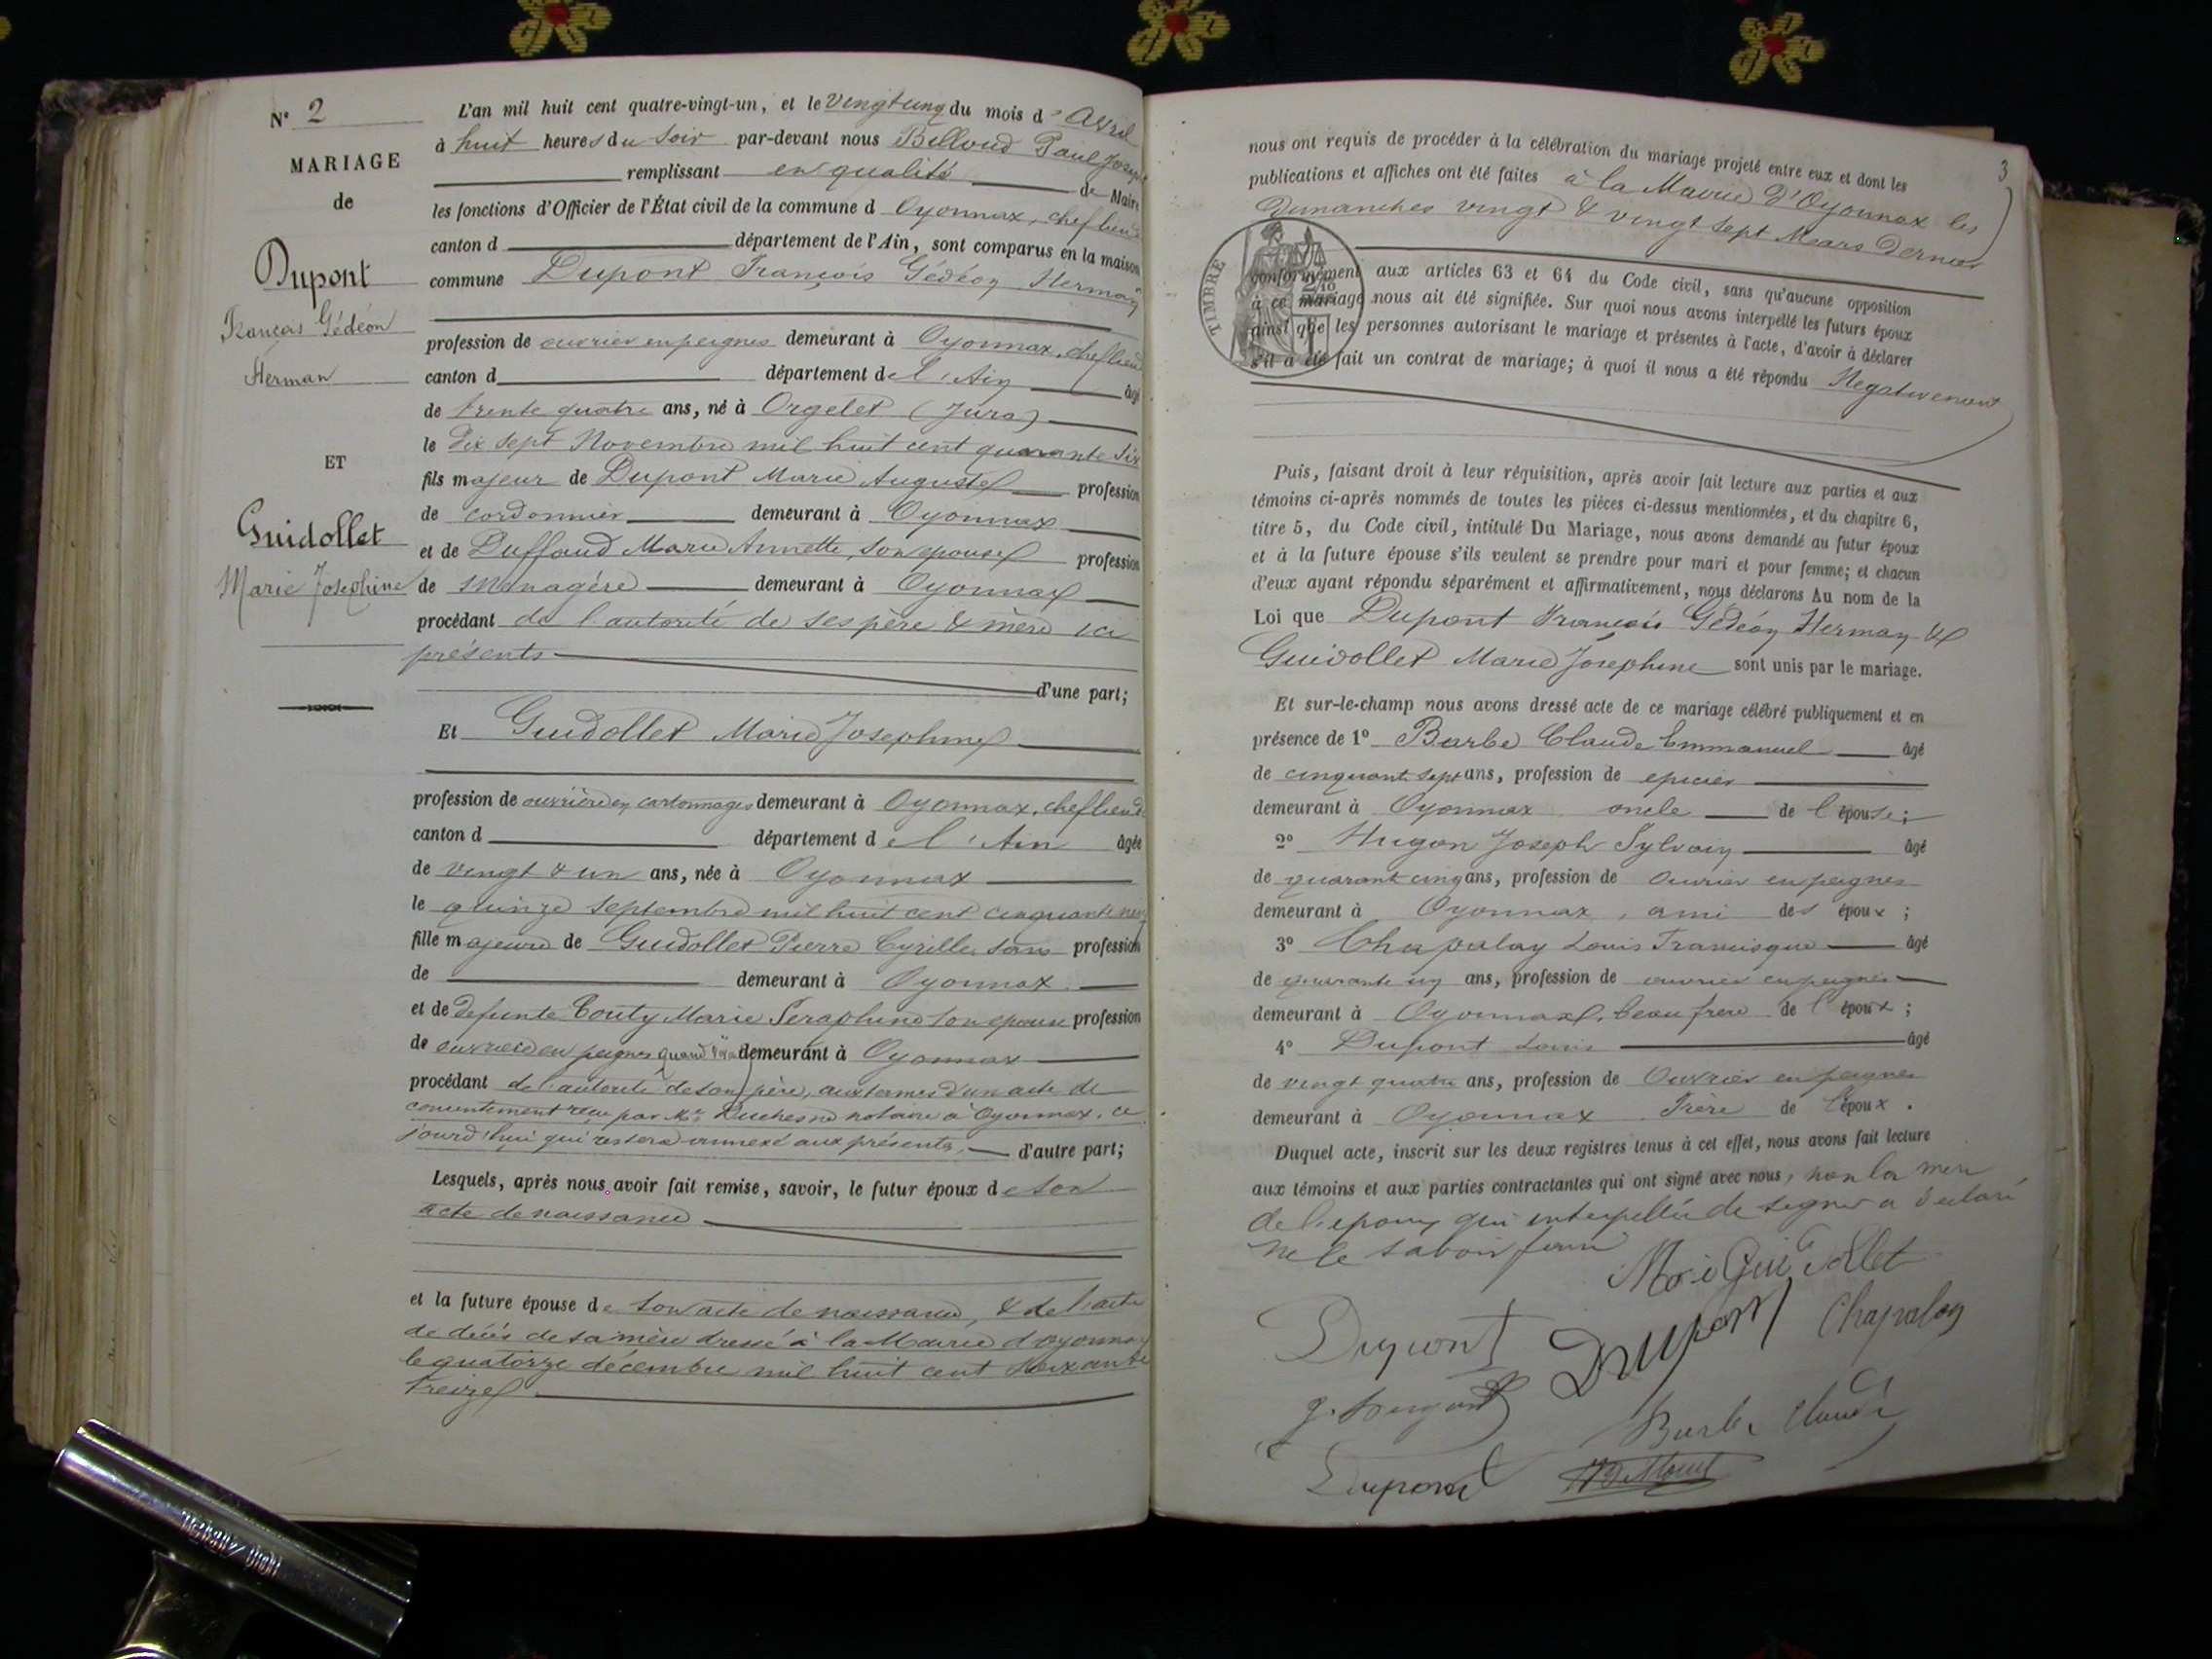 N° 2
MARIAGE
de
Dupont
François Gédéon
Herman
ET
Guidollet
Marie Josephine
L'an mil huit cent quatre-vingt-un, et le vingt cinq du mois d'Avril
à huit heures du soir par-devant nous Belloud Paul Joseph
remplissant en qualité de Maire
les fonctions d'Officier de l'État civil de la commune d Oyonnax, chef lieu de
canton d département de l'Ain, sont comparus en la maison
commune Dupont François Gédéon Herman
profession de ouvrier en peignes demeurant à Oyonnax, chef lieu de
canton d département de l'Ain âgé
de trente quatre ans, né à Orgelet (Jura)
le dix sept Novembre mil huit cent quarante six
fils majeur de Dupont Marie Auguste profession
de cordonnier demeurant à Oyonnax
et de Duffaud Marie Annette, son epouse profession
de ménagère demeurant à Oyonnax
procédant de l'autorité de ses père & mère ici
présents
d'une part;
Et Guidollet Marie Josephine
profession de ouvrière en cartonnages demeurant à Oyonnax, chef lieu de
canton d département de l'Ain âgée
de vingt & un ans, née à Oyonnax
le quinze septembre mil huit cent cinquante neuf
fille majeure de Guidollet Pierre Cyrille, sans profession
de demeurant à Oyonnax
et de defunte Couty Marie Seraphine son epouse profession
de ouvrière en peignes quand demeurant à Oyonnax
procédant de l'autorité de son père, aux termes d'un acte de
consentement reçu par Me Duchesne notaire à Oyonnax, ce
jourd'hui qui restera annexé aux présentes, d'autre part;
Lesquels, après nous avoir fait remise, savoir, le futur époux de son
acte de naissance
et la future épouse de son acte de naissance, & de l'acte
de décès de sa mère dressé à la Mairie d'Oyonnax
le quatorze décembre mil huit cent soixante
treize
3
nous ont requis de procéder à la célébration du mariage projeté entre eux et dont les
publications et affiches ont été faites à la Mairie d'Oyonnax les
dimanches vingt & vingt sept Mars dernier
TIMBRE
conformément aux articles 63 et 64 du Code civil, sans qu'aucune opposition
à ce mariage nous ait été signifiée. Sur quoi nous avons interpellé les futurs époux
ainsi que les personnes autorisant le mariage et présentes à l'acte, d'avoir à déclarer
s'il a été fait un contrat de mariage; à quoi il nous a été répondu Négativement
Puis, faisant droit à leur réquisition, après avoir fait lecture aux parties et aux
témoins ci-après nommés de toutes les pièces ci-dessus mentionnées, et du chapitre 6,
titre 5, du Code civil, intitulé Du Mariage, nous avons demandé au futur époux
et à la future épouse s'ils veulent se prendre pour mari et pour femme; et chacun
d'eux ayant répondu séparément et affirmativement, nous déclarons Au nom de la
Loi que Dupont François Gédéon Herman &
Guidollet Marie Josephine sont unis par le mariage.
Et sur-le-champ nous avons dressé acte de ce mariage célébré publiquement et en
présence de 1° Barbe Claude Emmanuel âgé
de cinquante sept ans, profession de epicier
demeurant à Oyonnax oncle de l'épouse;
2° Hugon Joseph Sylvain âgé
de quarante cinq ans, profession de ouvrier en peignes
demeurant à Oyonnax, ami des époux;
3° Chapalay Louis Francisque âgé
de quarante un ans, profession de ouvrier en peignes
demeurant à Oyonnax, beau frere de l'époux;
4° Dupont Louis âgé
de vingt quatre ans, profession de Ouvrier en peignes
demeurant à Oyonnax Frère de l'époux.
Duquel acte, inscrit sur les deux registres tenus à cet effet, nous avons fait lecture
aux témoins et aux parties contractantes qui ont signé avec nous, non la mère
de l'epoux qui interpellée de signer a déclaré
ne le savoir faire
Marie Guidollet
Dupont Dupont Chapalay
J. Hugon Barbe Claude
Dupont